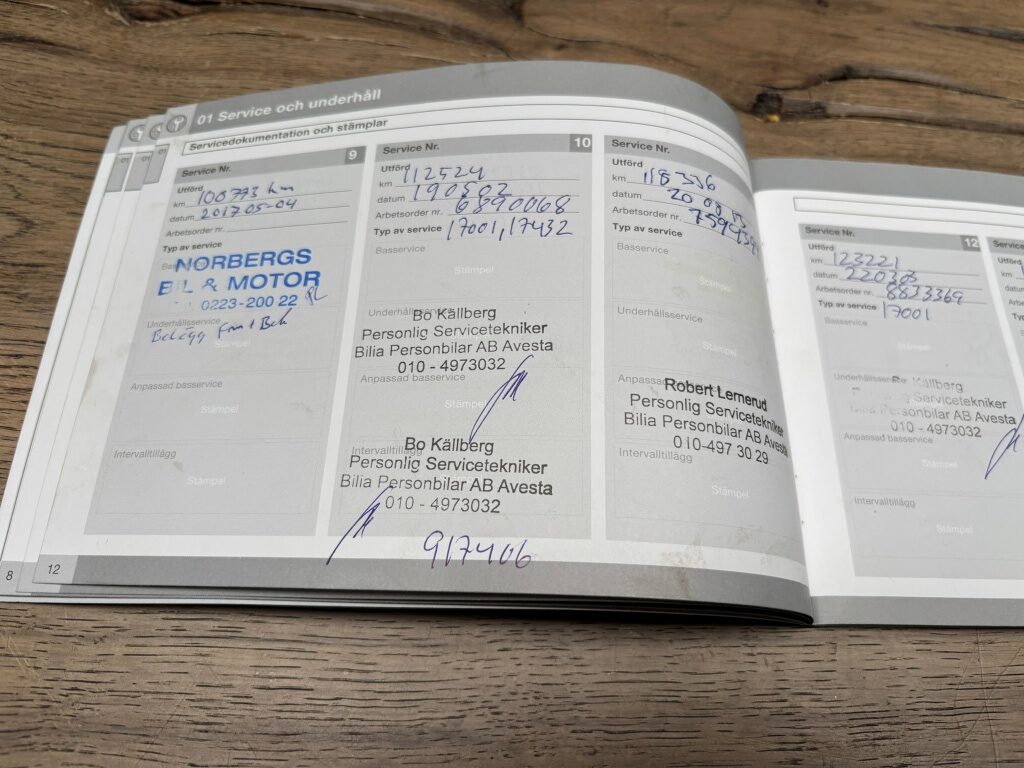 01 Service och underhåll
Servicedokumentation och stämplar
Service Nr. 9
Utförd
km 108773 km
datum 2017 05-04
Arbetsorder nr.
Typ av service
NORBERGS
BIL & MOTOR
0223-200 22
Underhållsservice
Stämpel
Anpassad basservice
Stämpel
Intervalltillägg
Stämpel
Service Nr. 10
Utförd
km 112524
datum 190502
Arbetsorder nr. 6890068
Typ av service 17001, 17432
Basservice
Stämpel
Bo Källberg
Personlig Servicetekniker
Bilia Personbilar AB Avesta
010 - 4973032
Anpassad basservice
Stämpel
Bo Källberg
Intervalltillägg
Personlig Servicetekniker
Bilia Personbilar AB Avesta
010 - 4973032
917406
Service Nr.
Utförd
km 118336
datum 20 08
Arbetsorder nr.
Typ av service
Basservice
Stämpel
Underhållsservice
Stämpel
Robert Lernerud
Personlig Servicetekniker
Bilia Personbilar AB Avesta
010-497 30 29
Intervalltillägg
Stämpel
8
12
Service Nr. 12
Utförd
km 123221
datum 220303
Arbetsorder nr. 8823369
Typ av service 17001
Basservice
Stämpel
Källberg
Servicetekniker
Personbilar AB Avesta
010 - 4973032
Anpassad basservice
Stämpel
Intervalltillägg
Stämpel